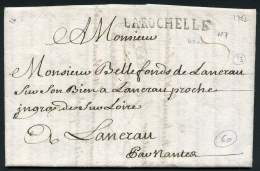 LAROCHELLE
A Monsieur
Monsieur Bellefonds de Lancrau
Sur Son Bien a Lancrau proche
ingrandes Sur Loire
a Lancrau
Par Nantes